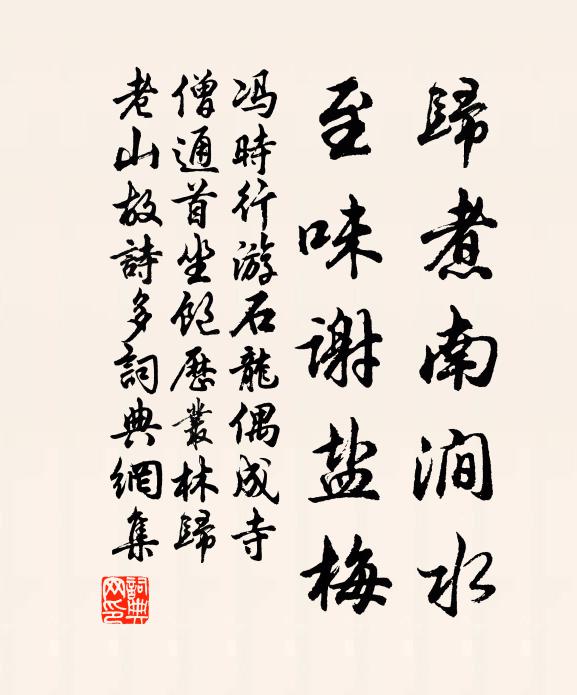 歸煮南澗水
至味謝盐梅
馮時行游石龍偶成寺
僧通首坐飽歷叢林歸
老山故詩多詞典網集
詞典
网印